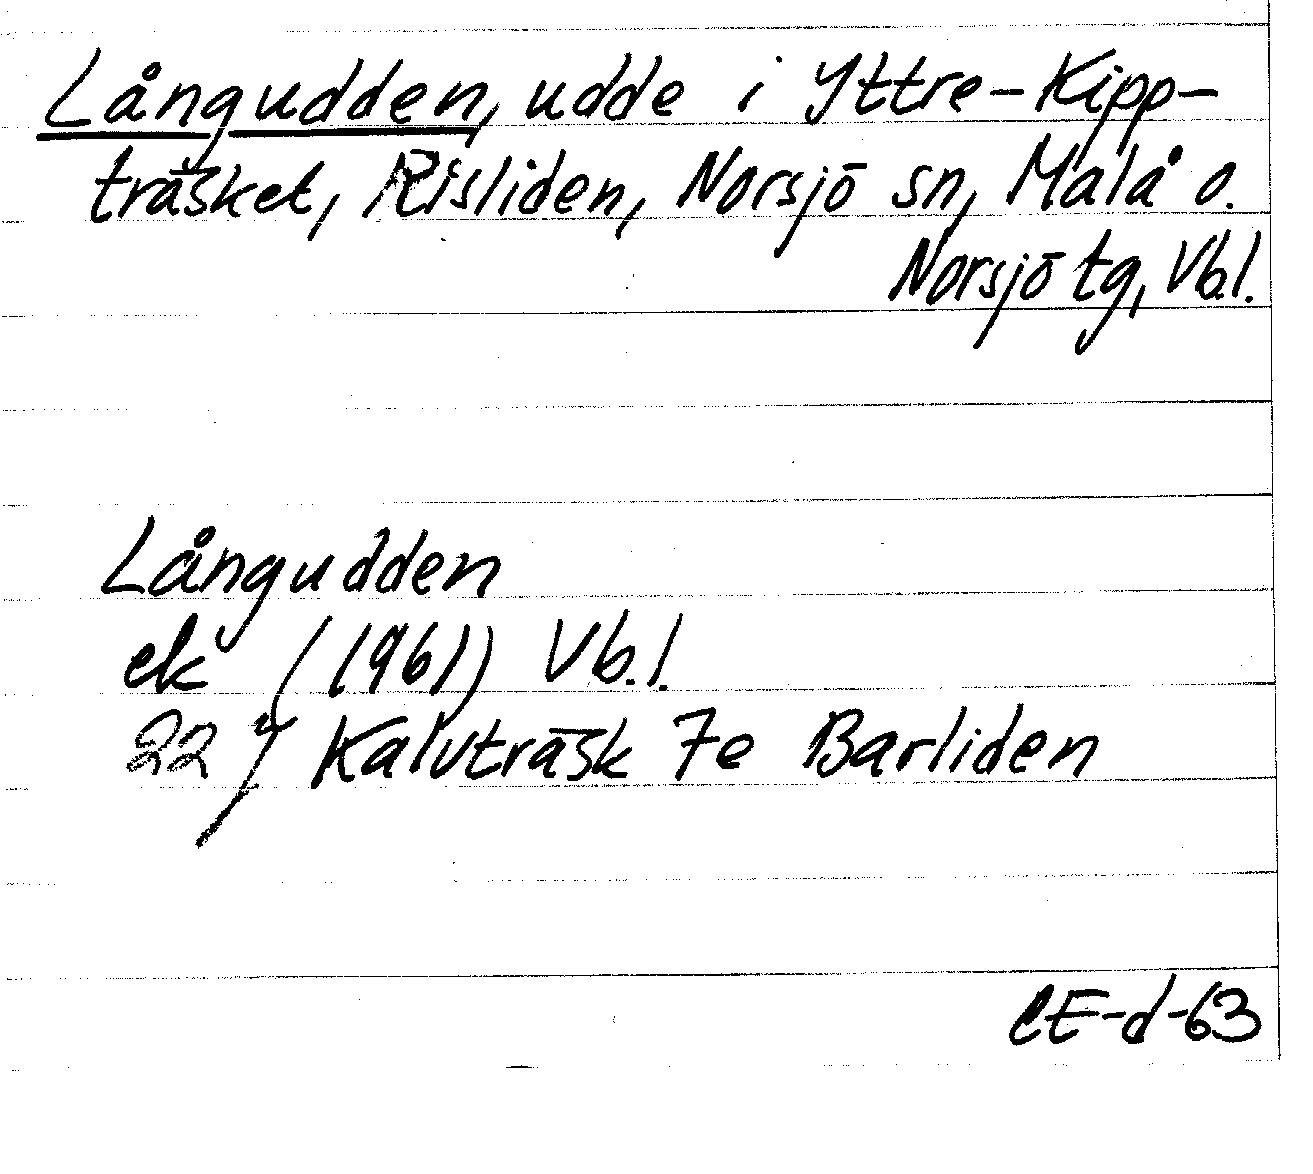 Långudden, udde i Yttre-Kipp-
träsket, Risliden, Norsjö sn, Malå o.
Norsjö tg, Vb.l.
Långudden
ek (1961) Vb.l.
22 J Kalvträsk 7e Barliden
CE-d-63